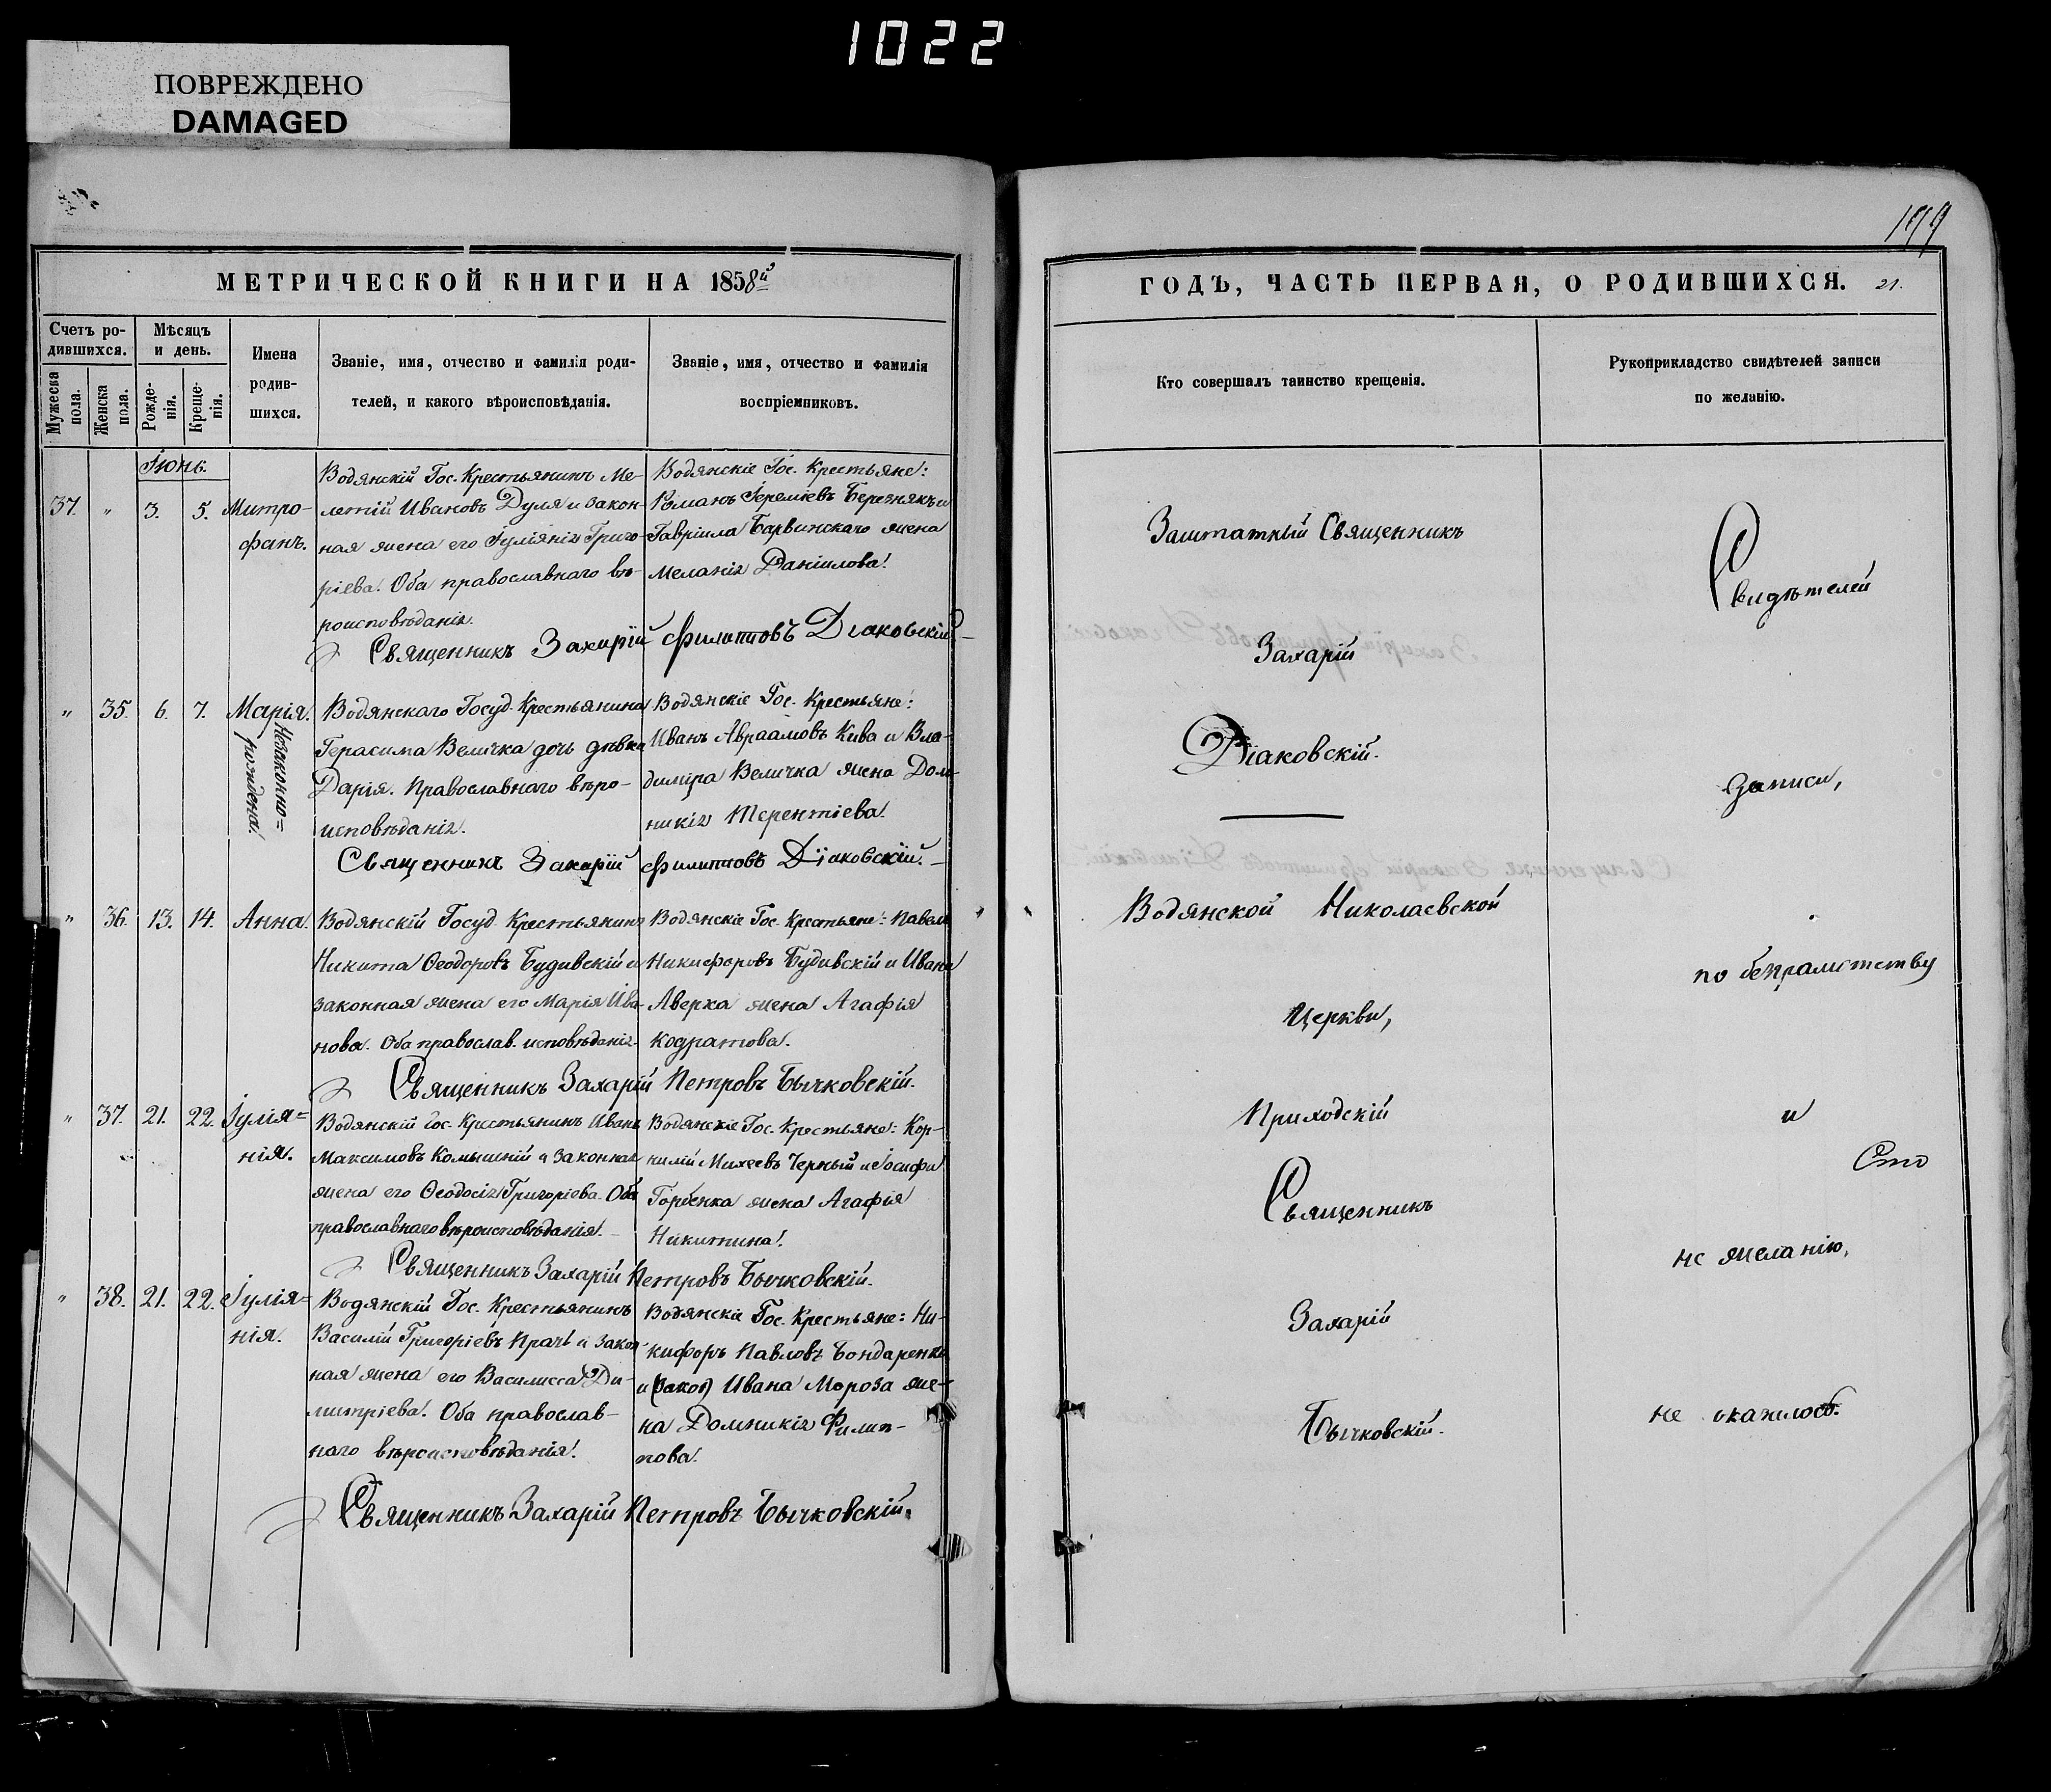 1022
ПОВРЕЖДЕНО
DAMAGED
МЕТРИЧЕСКОЙ КНИГИ НА 1858й
Счетъ ро-
дившихся.
Мѣсяцъ
и день.
Имена
родив-
шихся.
Званіе, имя, отчество и фамилія роди-
телей, и какого вѣроисповѣданія.
Званіе, имя, отчество и фамилія
воспріемниковъ.
Мужеска
пола.
Женска
пола.
Рожде-
нія.
Креще-
нія.
Іюнь.
37. " 3. 5. Митро-
фанъ.
Водянскій Гос. Крестьянинъ Ме-
летій Ивановъ Дуля и закон-
ная жена его Іуліянія Григо-
ріева. Оба православнаго вѣ-
роисповѣданія.
Водянскіе Гос. Крестьяне:
Романъ Іереміевъ Березнякъ и
Гавріила Барвинскаго жена
Меланія Даніилова.
Священникъ Захарій Филиповъ Діаковскій
" 35. 6. 7. Марія.
Незаконно=
рождена.
Водянскаго Госуд. Крестьянина
Герасима Величка дочь дѣвка
Дарія. Православнаго вѣро-
исповѣданія.
Водянскіе Гос. Крестьяне:
Иванъ Авраамовъ Кива и Вла-
диміра Величка жена Дом-
никія Терентіева.
Священникъ Захарій Филиповъ Діаковскій.
" 36. 13. 14. Анна.
Водянскій Госуд. Крестьянинъ
Никита Ѳеодоровъ Будивскій и
законная жена его Марія Ива-
нова. Оба православ. исповѣданія.
Водянскіе Гос. Крестьяне: Павелъ
Никифоровъ Будивскій и Ивана
Аверха жена Агафія
Кодратова.
Священникъ Захарій Петровъ Бычковскій.
" 37. 21. 22. Іулія=
нія.
Водянскій Гос. Крестьянинъ Иванъ
Максимовъ Комышній и законная
жена его Ѳеодосія Григоріева. Оба
православнаго вѣроисповѣданія.
Водянскіе Гос. Крестьяне: Кор-
нилій Михеевъ Черный и Іосифа
Горбенка жена Агафія
Никитина.
Священникъ Захарій Петровъ Бычковскій.
" 38. 21. 22. Іулія=
нія.
Водянскій Гос. Крестьянинъ
Василій Григоріевъ Прачъ и закон-
ная жена его Василисса Ди-
митріева. Оба православ-
наго вѣроисповѣданія.
Водянскіе Гос. Крестьяне: Ни-
кифоръ Павловъ Бондаренко
и Ивана Мороза же-
на Домникія Филип-
пова.
Священникъ Захарій Петровъ Бычковскій.
ГОДЪ, ЧАСТЬ ПЕРВАЯ, О РОДИВШИХСЯ. 21.
Кто совершалъ таинство крещенія.
Рукоприкладство свидѣтелей записи
по желанію.
Заштатный Священникъ
Захарій
Діаковскій.
Водянской Николаевской
Церкви,
Приходскій
Священникъ
Захарій
Бычковскій.
Свидѣтелей
записи,
по безграмотству
и
не желанію,
не оказалось.